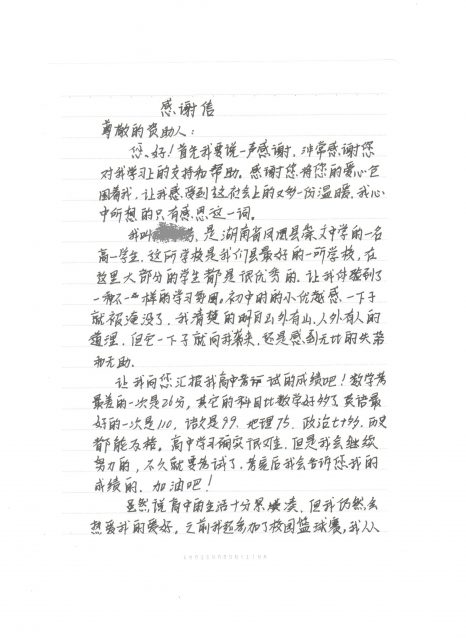 感谢信
尊敬的资助人：
您、好！首先我要说一声感谢，非常感谢您
对我学习上的支持和帮助。感谢您将您的爱心包
围着我，让我感受到这社会上的又多一份温暖，我心
中所想的只有感恩这一词。
我叫 ，是湖南省凤凰县 中学的一名
高一学生，这所学校是我们县最好的一所学校，在
这里大部分的学生都是很优秀的。让我体验到了
一种不一样的学习氛围。初中时的小优越感一下子
就被淹没了，我清楚的明白山外有山、人外有人的
道理，但它一下子就向我袭来，还是感到无比的失落
和无助。
让我向您汇报我高中考试的成绩吧！数学考
最差的一次是26分，其它的科目比数学好多了，英语最
好的一次是110，语文是99，地理75，政治七十多，历史
都能及格。高中学习确实很难，但是我会继续
努力的，不久就要考试了，考完后我会告诉您我的
成绩的，加油吧！
虽然说高中的生活十分紧凑，但我仍然会
热爱我的爱好。之前我还参加了校园篮球赛，我从